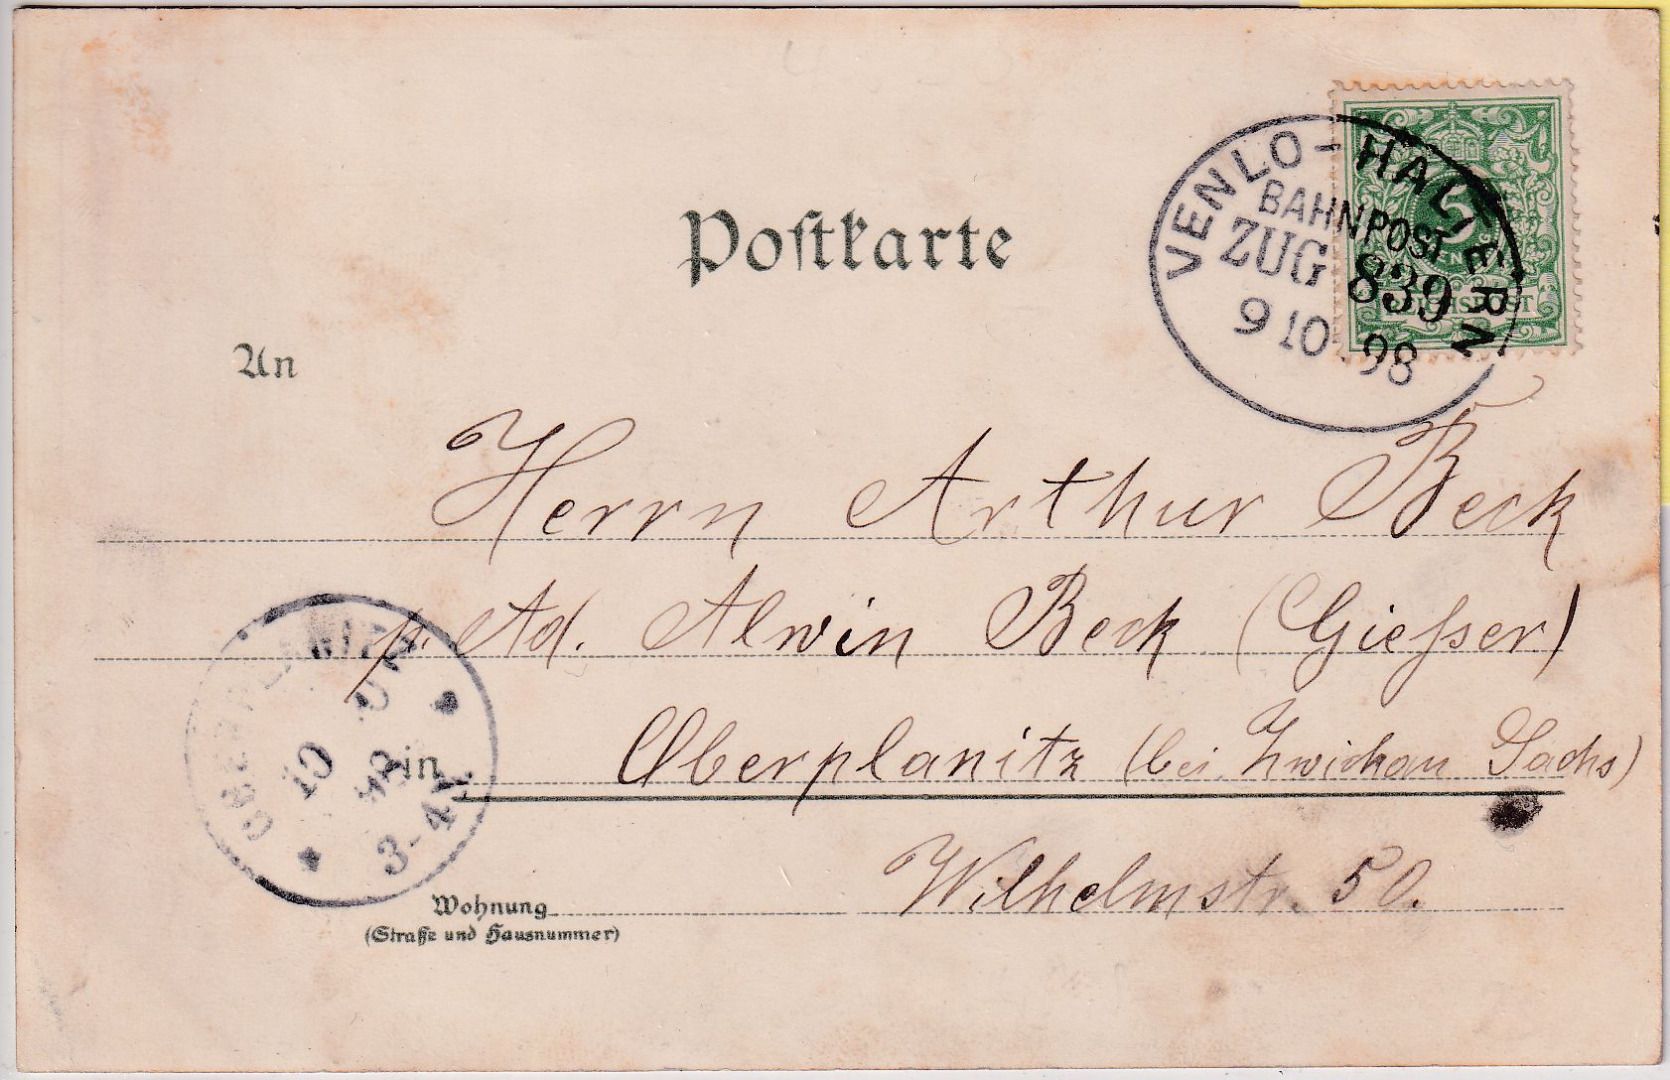 Postkarte
VENLO - HALTERN
BAHNPOST
ZUG 839
9 10 98
5
REICHSPOST
An
Herrn Arthur Beck
p. Ad. Alwin Beck (Giesser)
in Oberplanitz (bei Zwickau Sachs)
Wilhelmstr. 50.
Wohnung
(Straße und Hausnummer)
OBERPLANITZ
10 10
98
3-4N